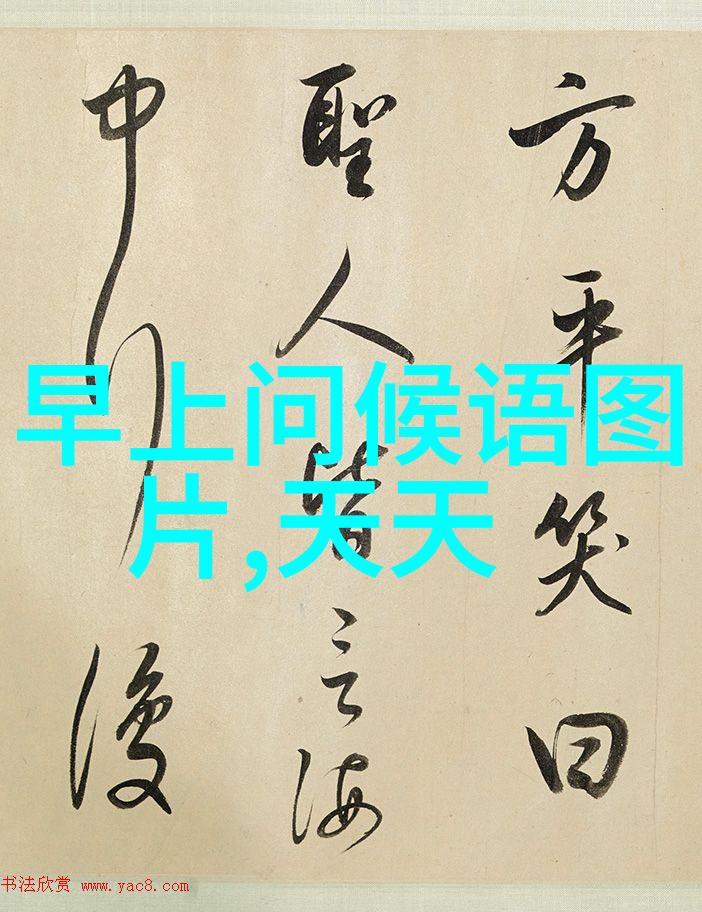 方平笑曰
聖人皆言海
中行復
早上问候语图
片,天天
书法欣赏 www.yac8.com